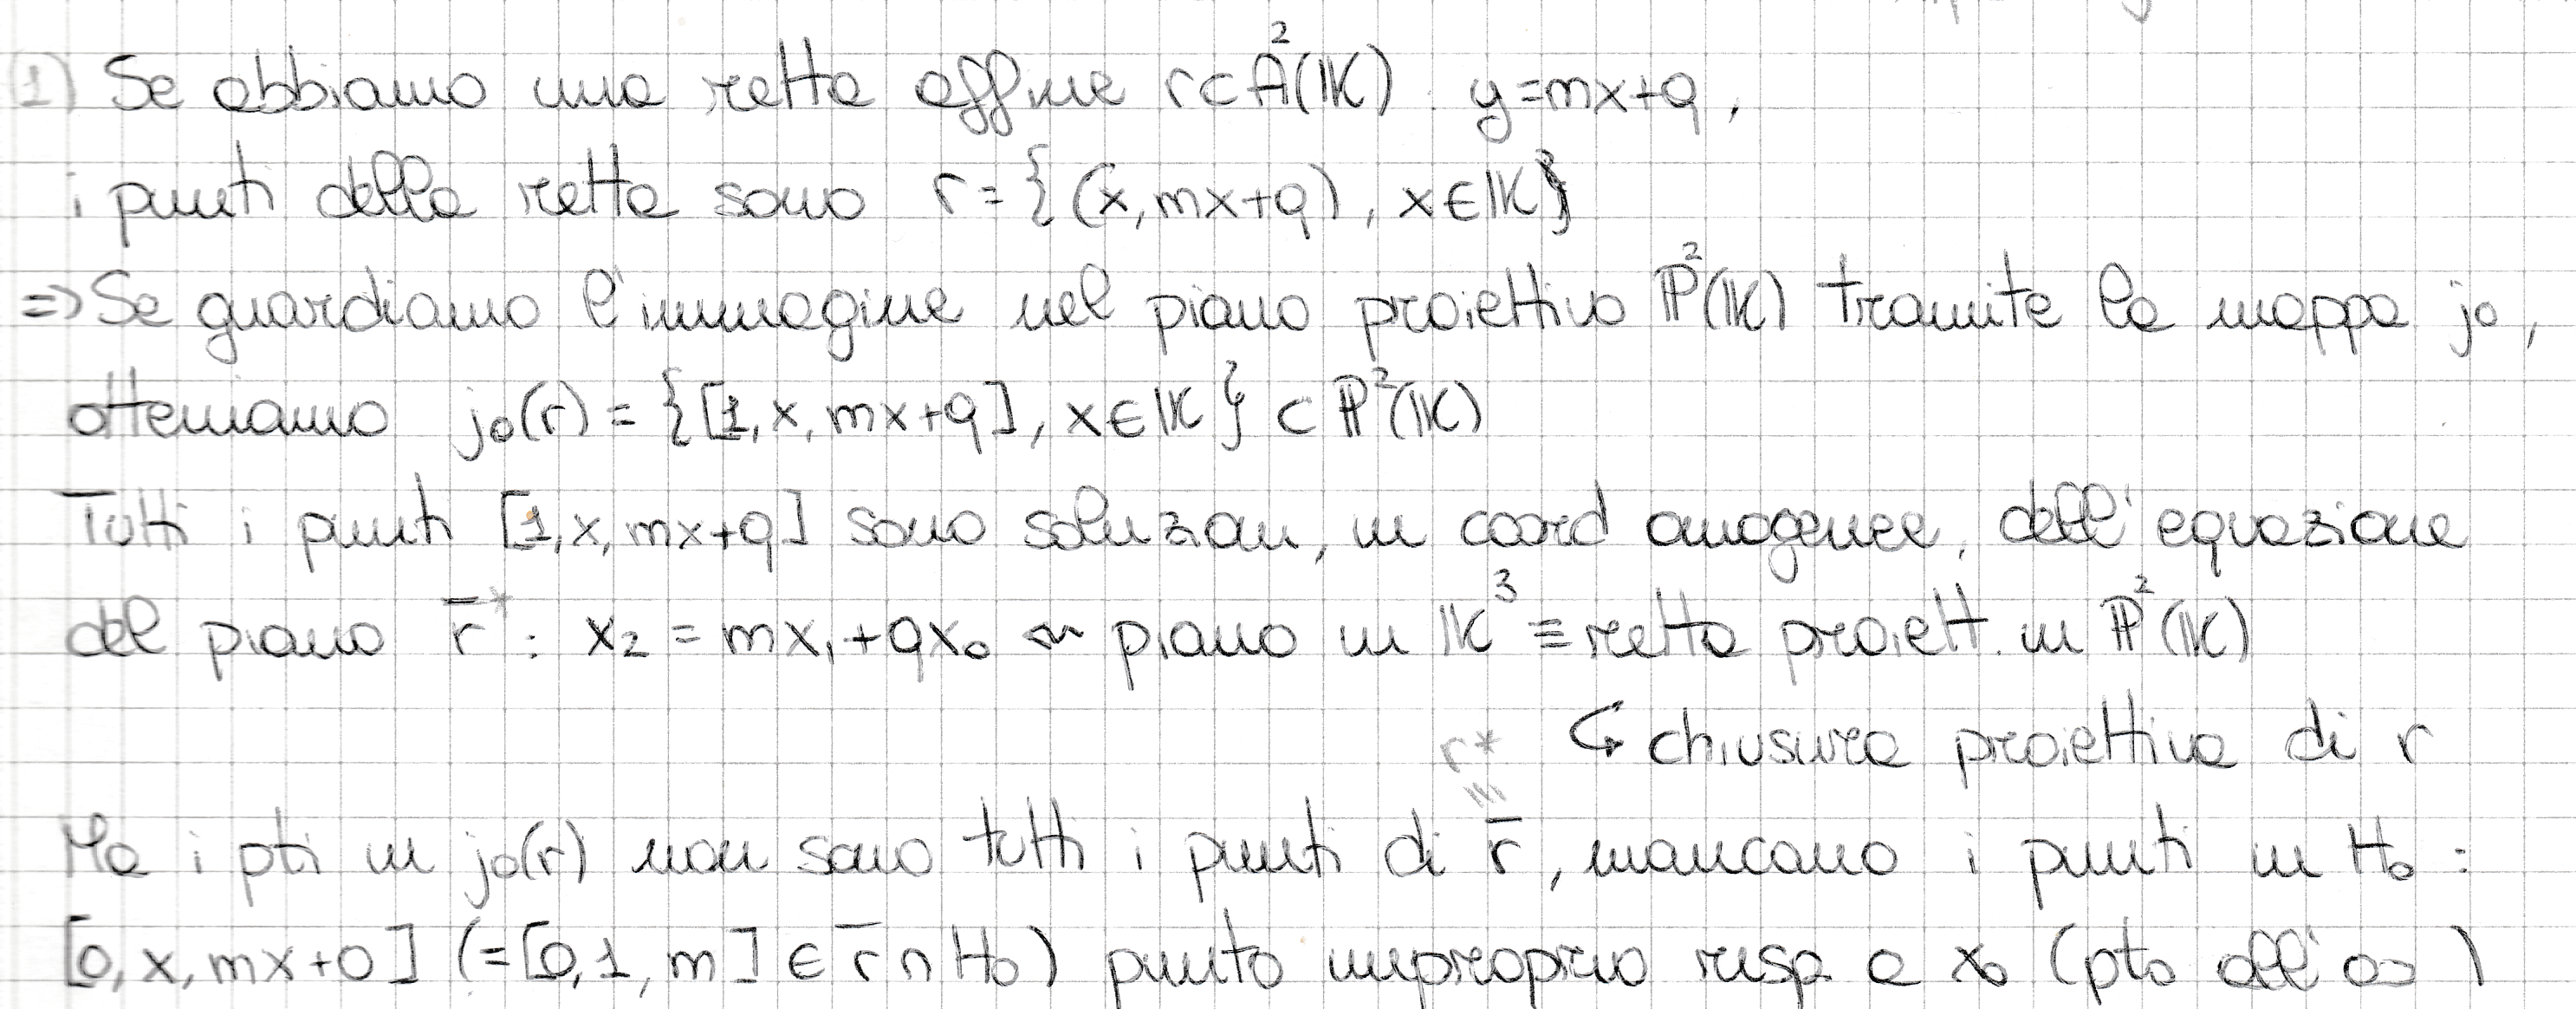 1) Se abbiamo una retta affine r⊂A²(K) : y=mx+q,
i punti della retta sono r={(x,mx+q), x∈K}
=> Se guardiamo l'immagine nel piano proiettivo P²(K) tramite la mappa j₀,
otteniamo j₀(r) = {[1,x,mx+q], x∈K} ⊂ P²(K)
Tutti i punti [1,x,mx+q] sono soluzioni, in coord omogenee, dell'equazione
del piano r̄* : x₂ = mx₁+qx₀ ~ piano in K³ ≡ retta proiett. in P²(K)
r* ↪ chiusura proiettiva di r
≡
Ma i pti in j₀(r) non sono tutti i punti di r̄, mancano i punti in H₀ :
[0,x,mx+0] (=[0,1,m] ∈ r̄∩H₀) punto improprio risp a x₀ (pto all'∞)